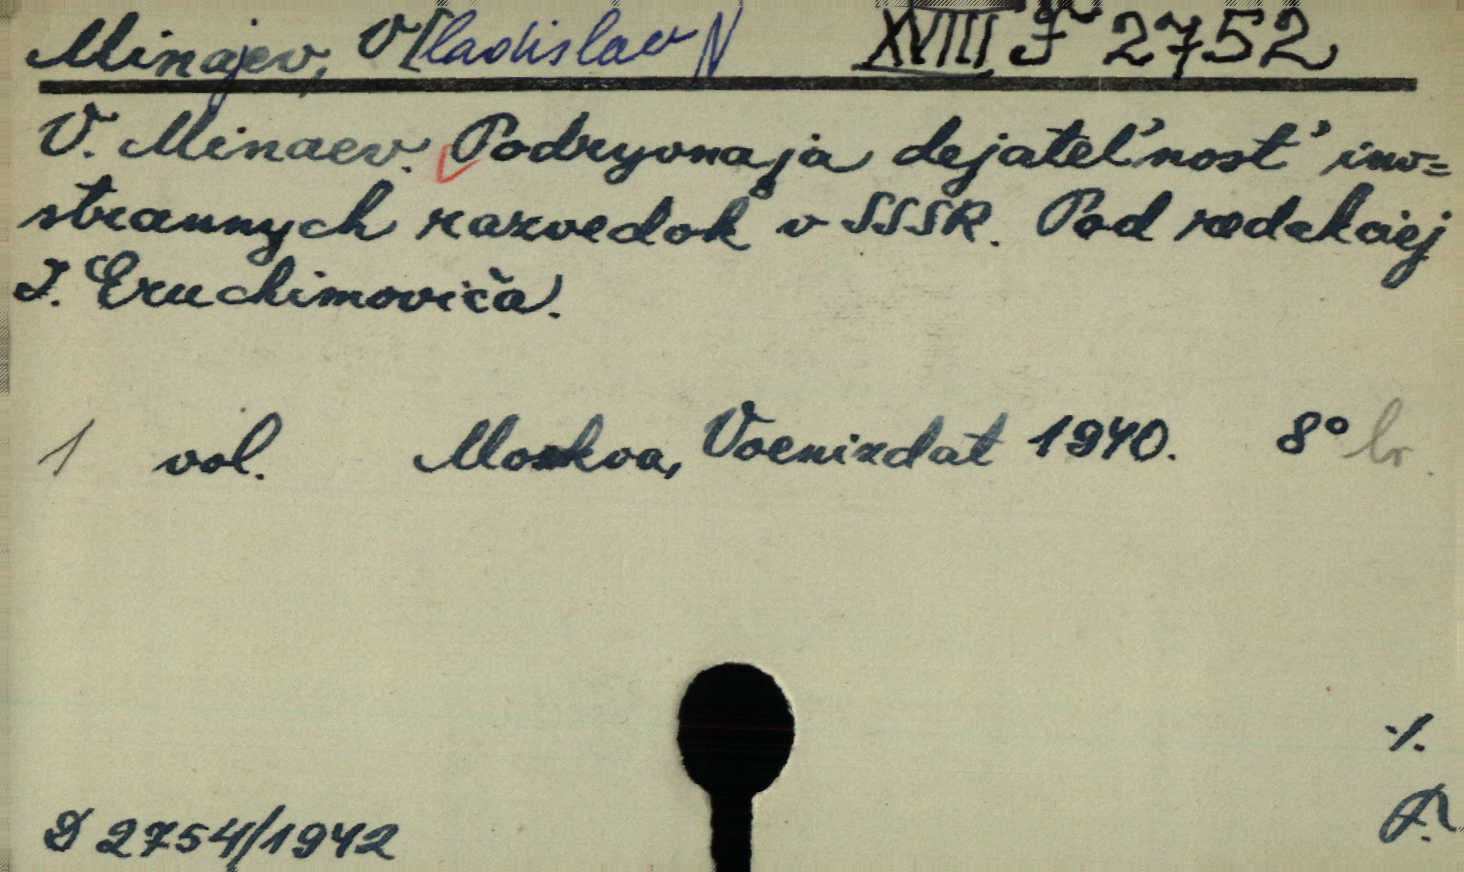 Minajev, Vladislav N XVIII J 2752
V. Minaev. Podryvnaja dejatel'nost' ino=
strannych razvedok v SSSR. Pod redakciej
I. Eruchimoviča.
1 vol. Moskva, Voenizdat 1940. 8° br
D 2754/1942
·/.